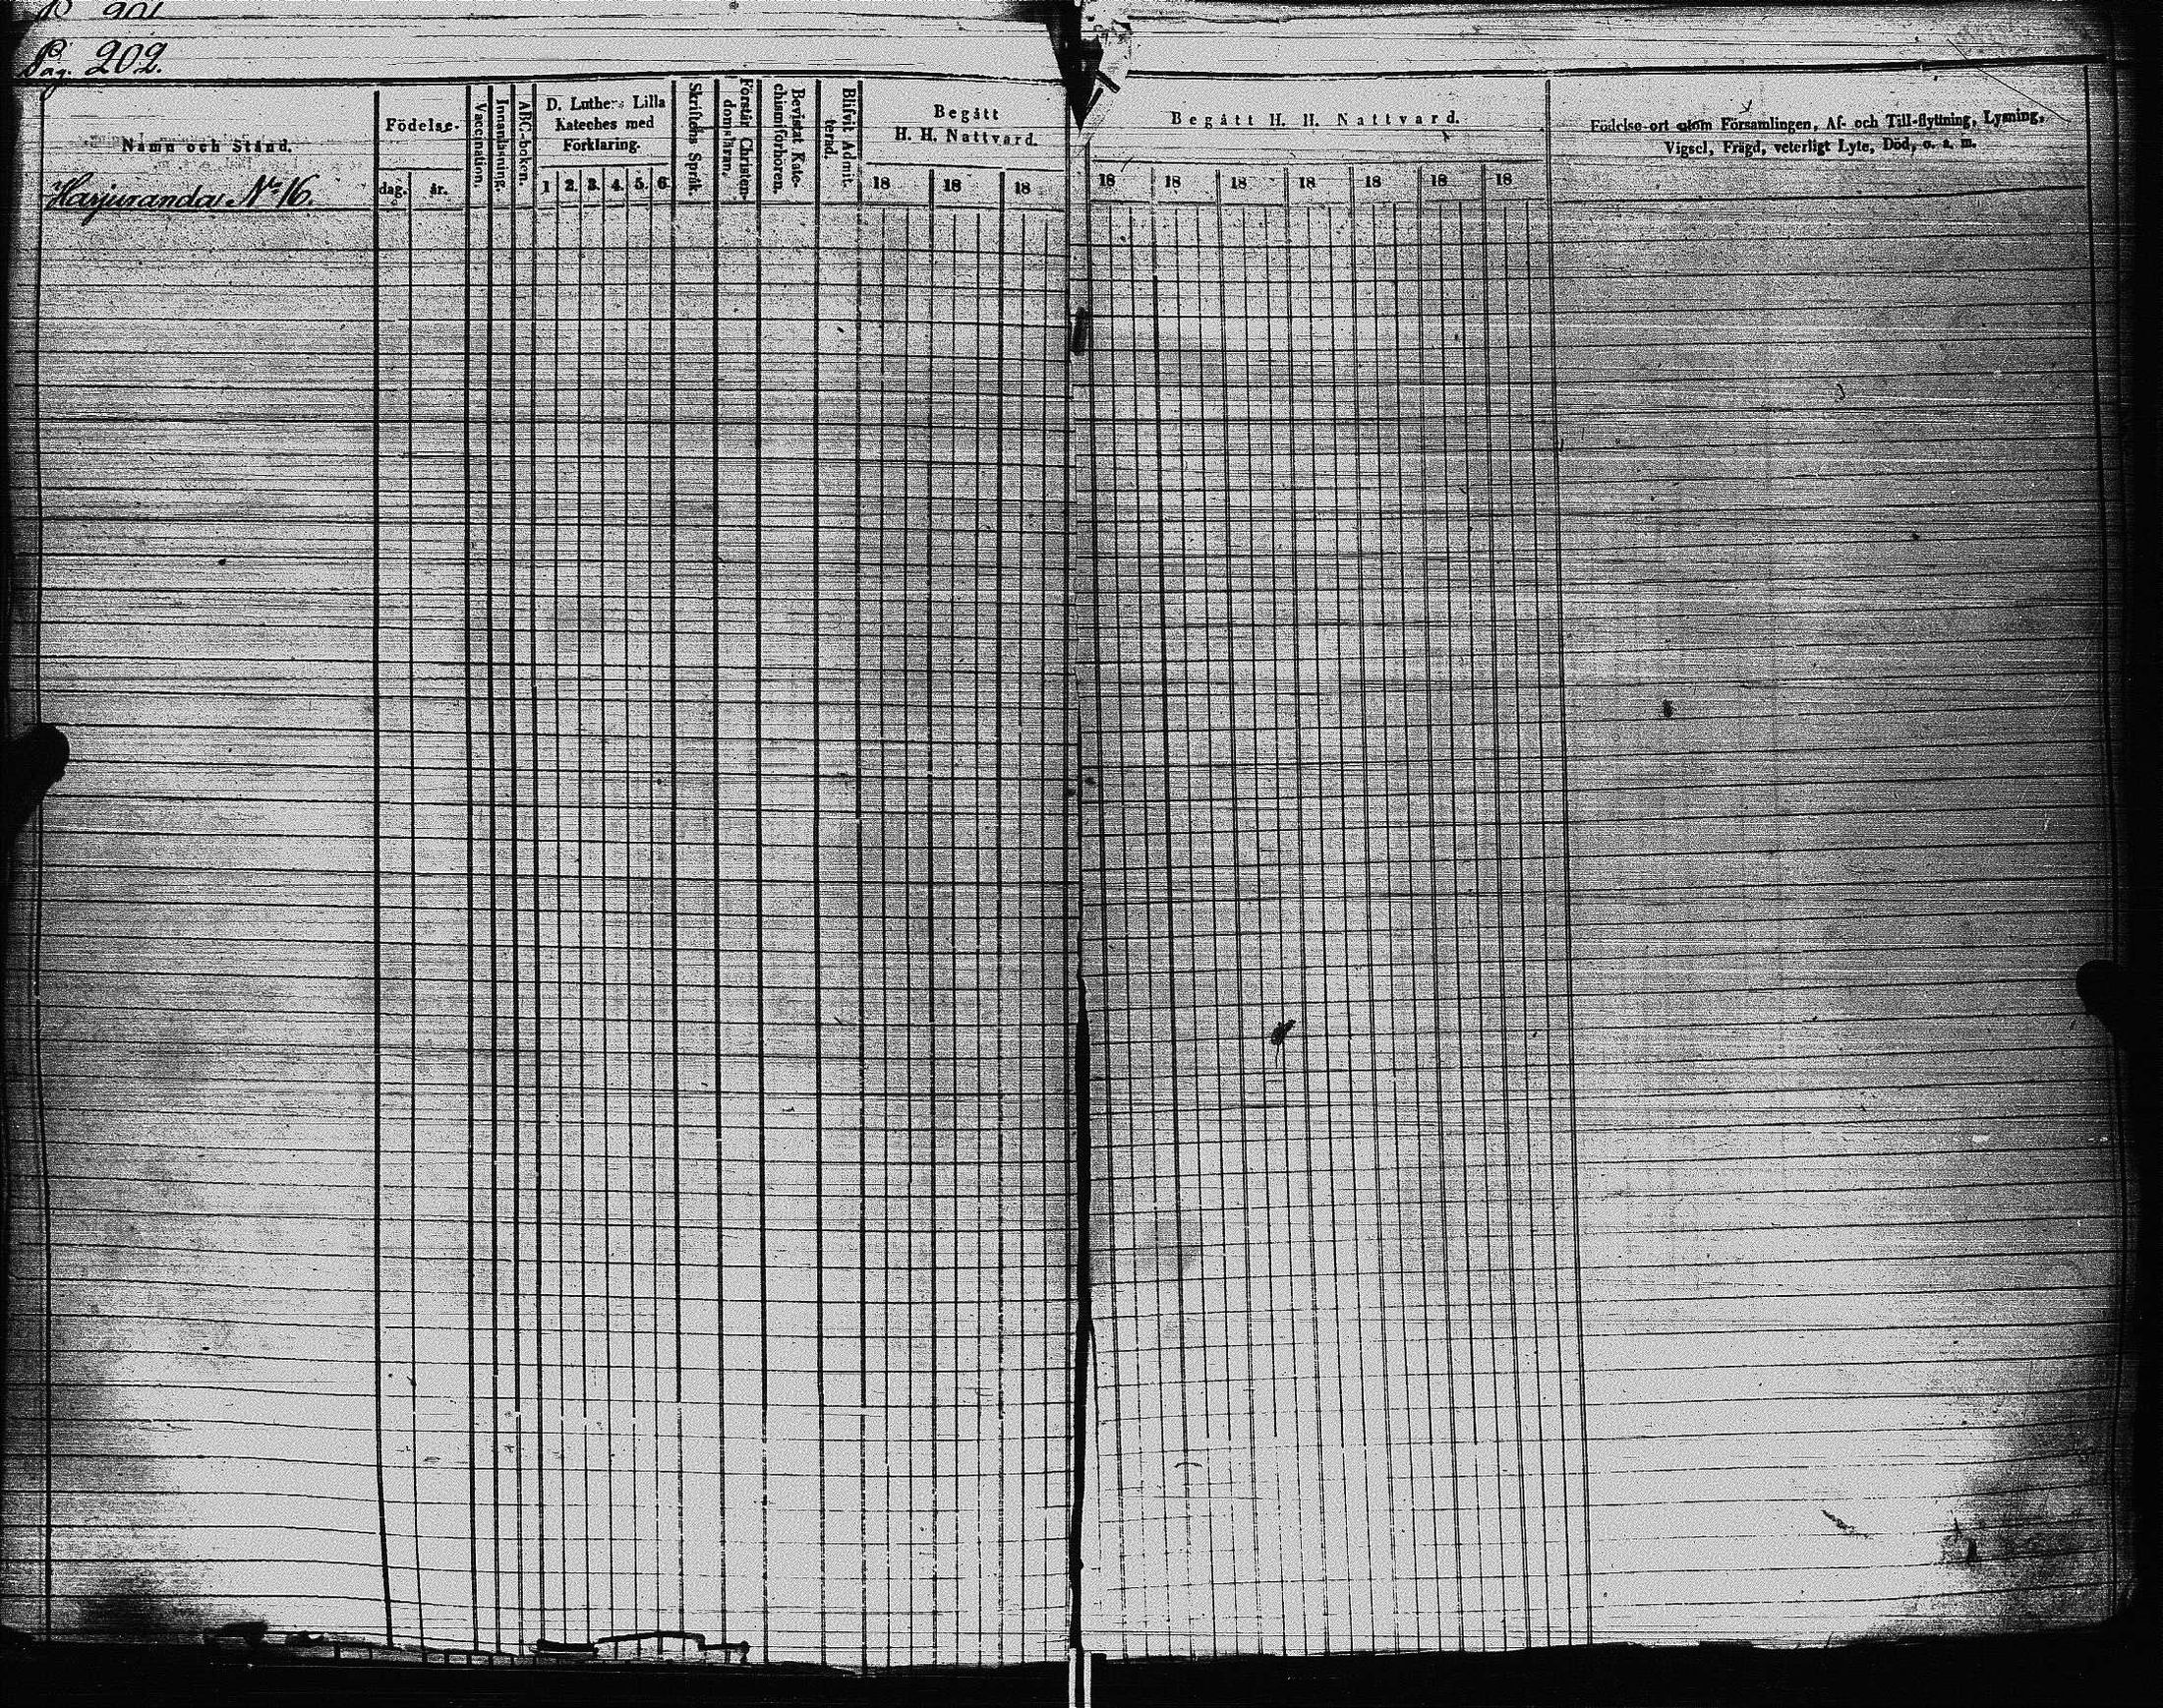 P. 201
Pag. 202.
Namn och Stånd.
Harjuranda N:o 16.
Födelse-
dag.
år.
Vaccination.
Innanläsning.
ABC-boken.
D. Luthers Lilla
Kateches med
Förklaring.
1 2. 3. 4. 5. 6.
Skriftens Språk.
Förstår Christen-
domsläran.
Bevistat Kate-
chismiförhören.
Blifvit Admit-
terad.
Begått
H. H. Nattvard.
18 18 18
Begått H. H. Nattvard.
18 18 18 18 18 18 18
Födelse-ort utom Församlingen, Af- och Till-flyttning, Lysning,
Vigsel, Frägd, veterligt Lyte, Död, o. s. m.